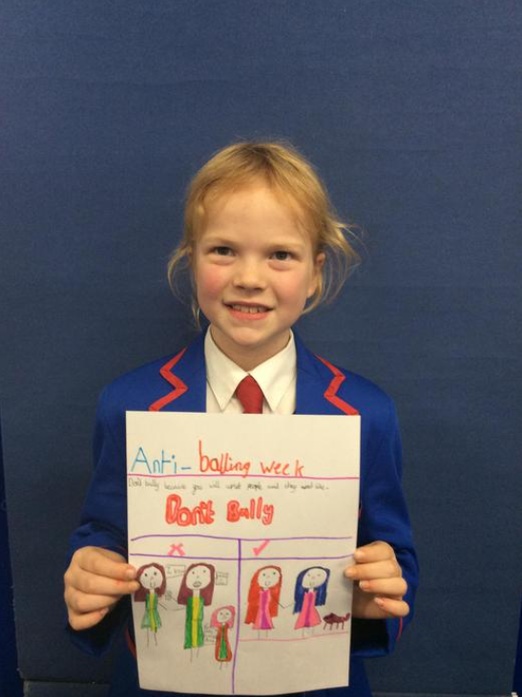 Anti-balling week
Don't bully because you will upset people and they
Don't Bully